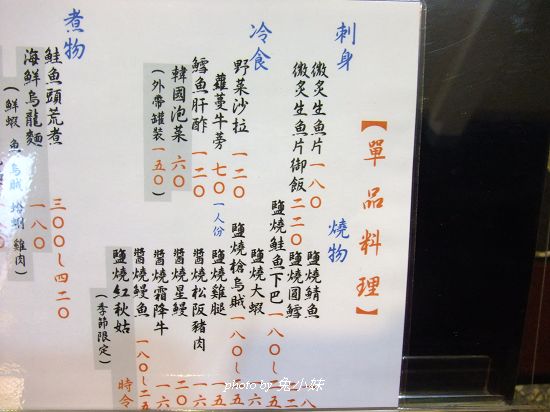 【單品料理】
刺身
微炙生魚片 一八〇
微炙生魚片御飯 二二〇
冷食
野菜沙拉 一二〇
蘿蔓牛蒡 七〇 一人份
鱈魚肝酢 一二〇
韓國泡菜 六〇
(外帶罐裝 一五〇)
燒物
鹽燒鯖魚 一八
鹽燒圓鱈
鹽燒鮭魚下巴 一八〇~
鹽燒大蝦
鹽燒槍烏賊 一八〇~
鹽燒雞腿
醬燒松阪豬肉
醬燒星鰻
醬燒霜降牛
醬燒鰻魚 一八〇~二五
鹽燒紅秋姑 時令
(季節限定)
煮物
鮭魚頭荒煮 三〇〇~四二〇
海鮮烏龍麵 一八〇
(鮮蝦 魚 烏賊 蛤蜊 雞肉)
photo by 兔小妹